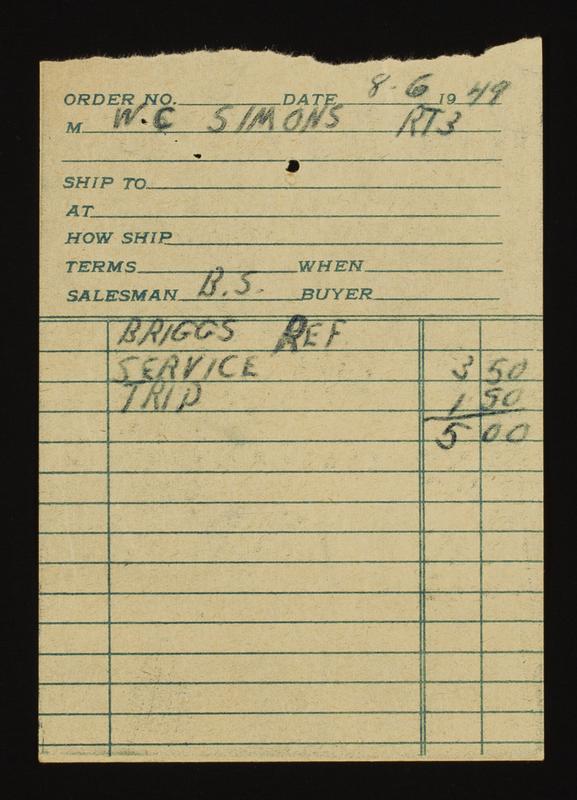 ORDER NO. DATE 8-6 1949
M W.C SIMONS RT3
SHIP TO
AT
HOW SHIP
TERMS WHEN
SALESMAN B.S. BUYER
BRIGGS REF
SERVICE 3 50
TRIP 1 50
5 00